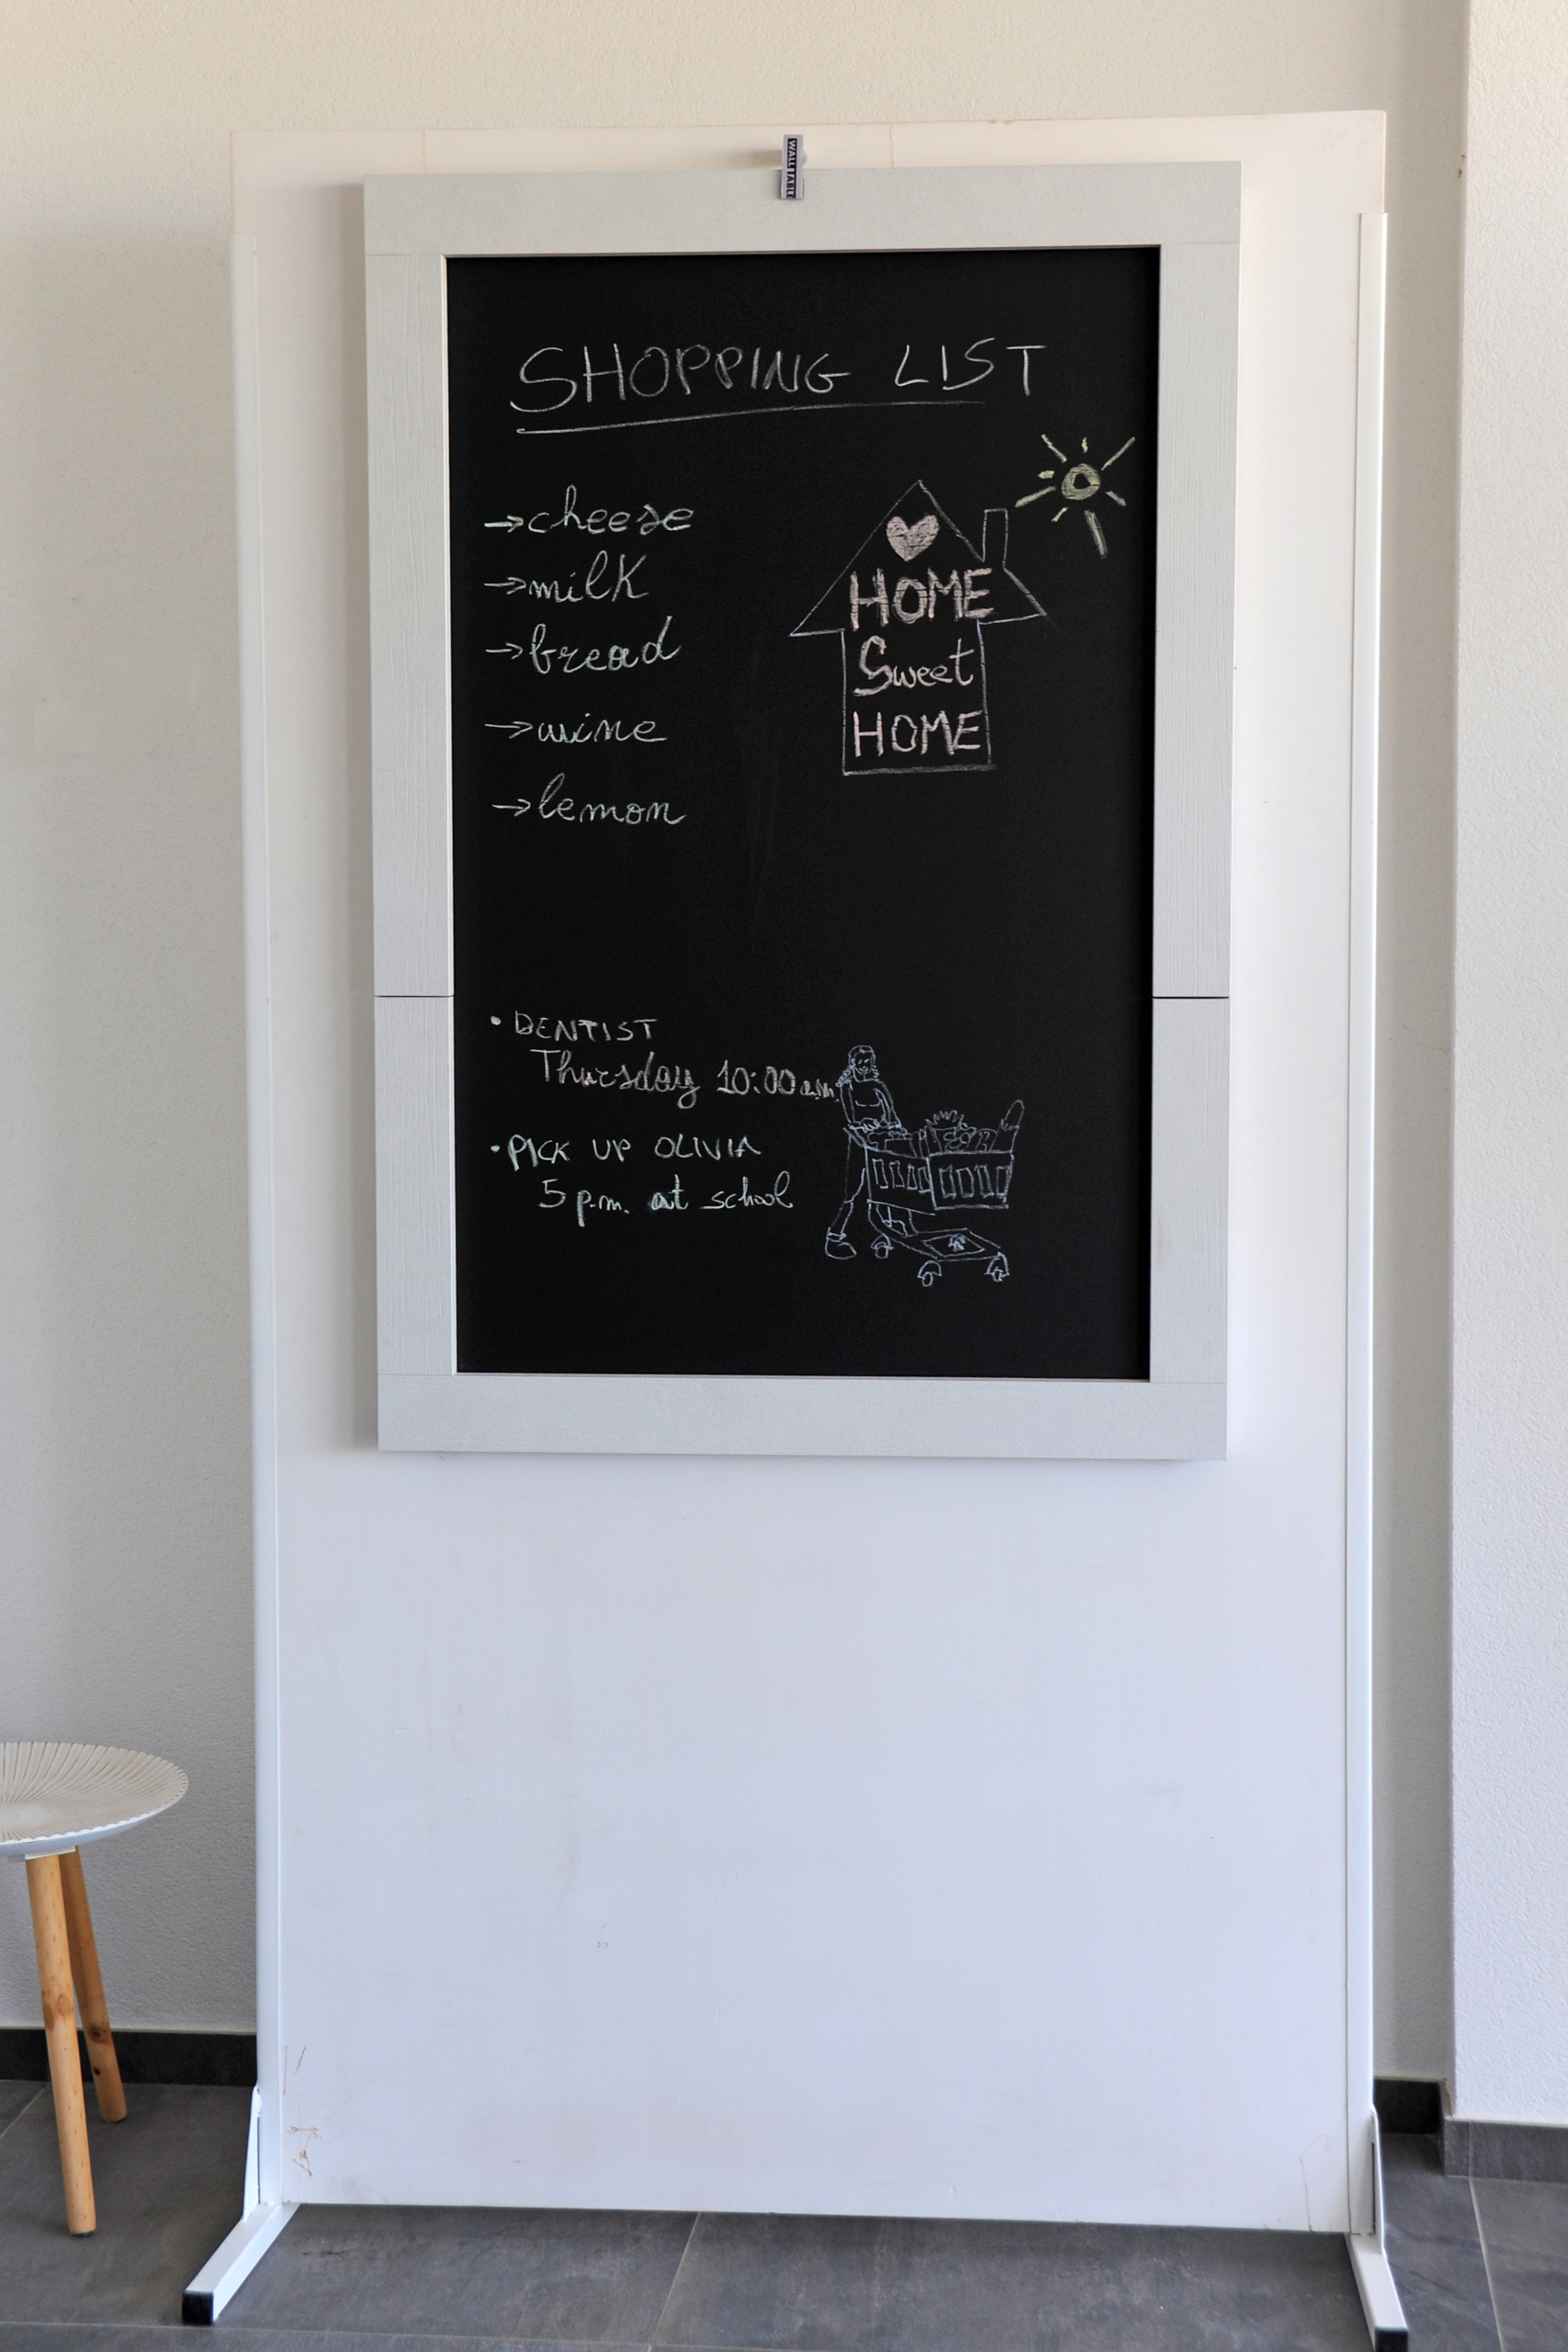 WALL TABLE
SHOPPING LIST
→cheese
→milk
→bread
→wine
→lemon
HOME
Sweet
HOME
• DENTIST
Thursday 10:00 a.m.
• PICK UP OLIVIA
5 p.m. at school